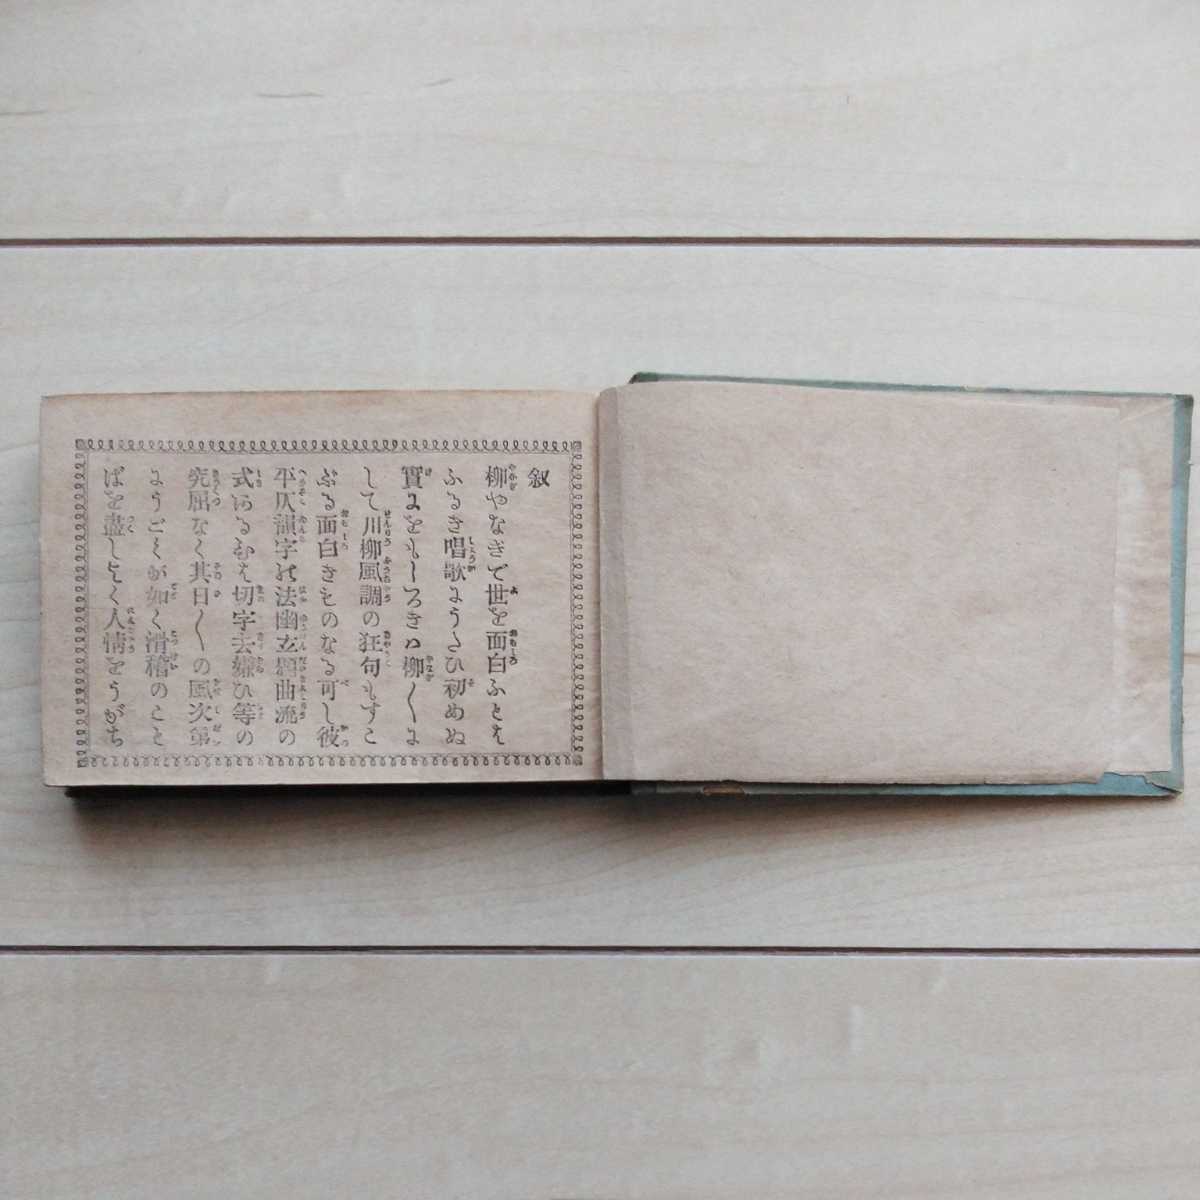 叙
柳やなぎで世を面白ふとは
ふるき唱歌にうたひ初めぬ
實にをもしろきハ柳〱に
して川柳風調の狂句もすこ
ぶる面白きものなる可し彼
平仄韻字の法幽玄 曲流の
式あるひは切字去嫌ひ等の
究屈なく其日〱の風次第
にうごくが如く滑稽のこと
ばを盡しよく人情をうがち